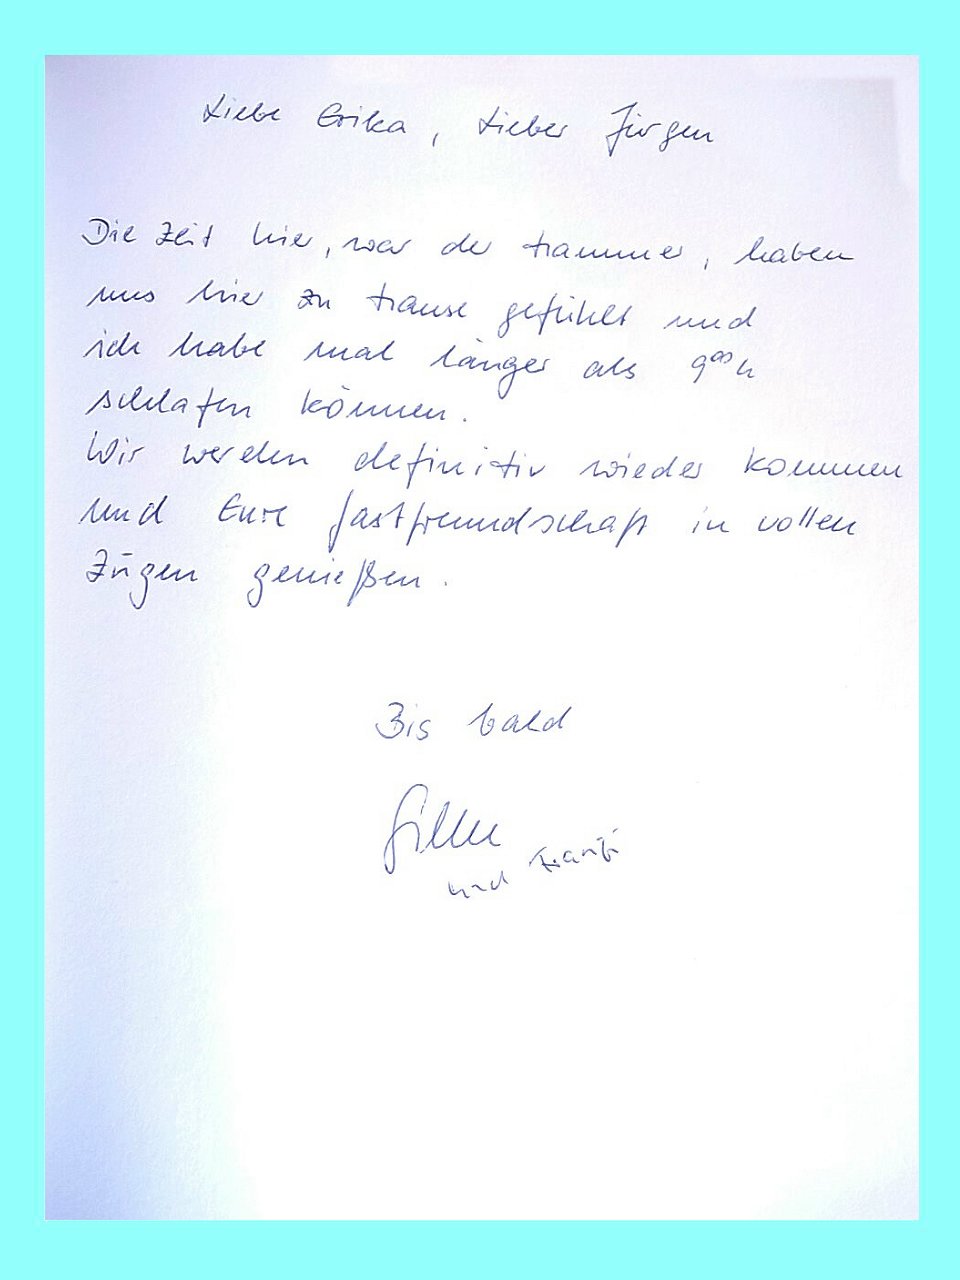 Liebe Erika, Lieber Jürgen
Die Zeit hier, war der Hammer, haben
uns hier zu Hause gefühlt und
ich habe mal länger als 9⁰⁰ h
schlafen können.
Wir werden definitiv wieder kommen
und Eure Gastfreundschaft in vollen
Zügen genießen.
Bis bald
und Franzi